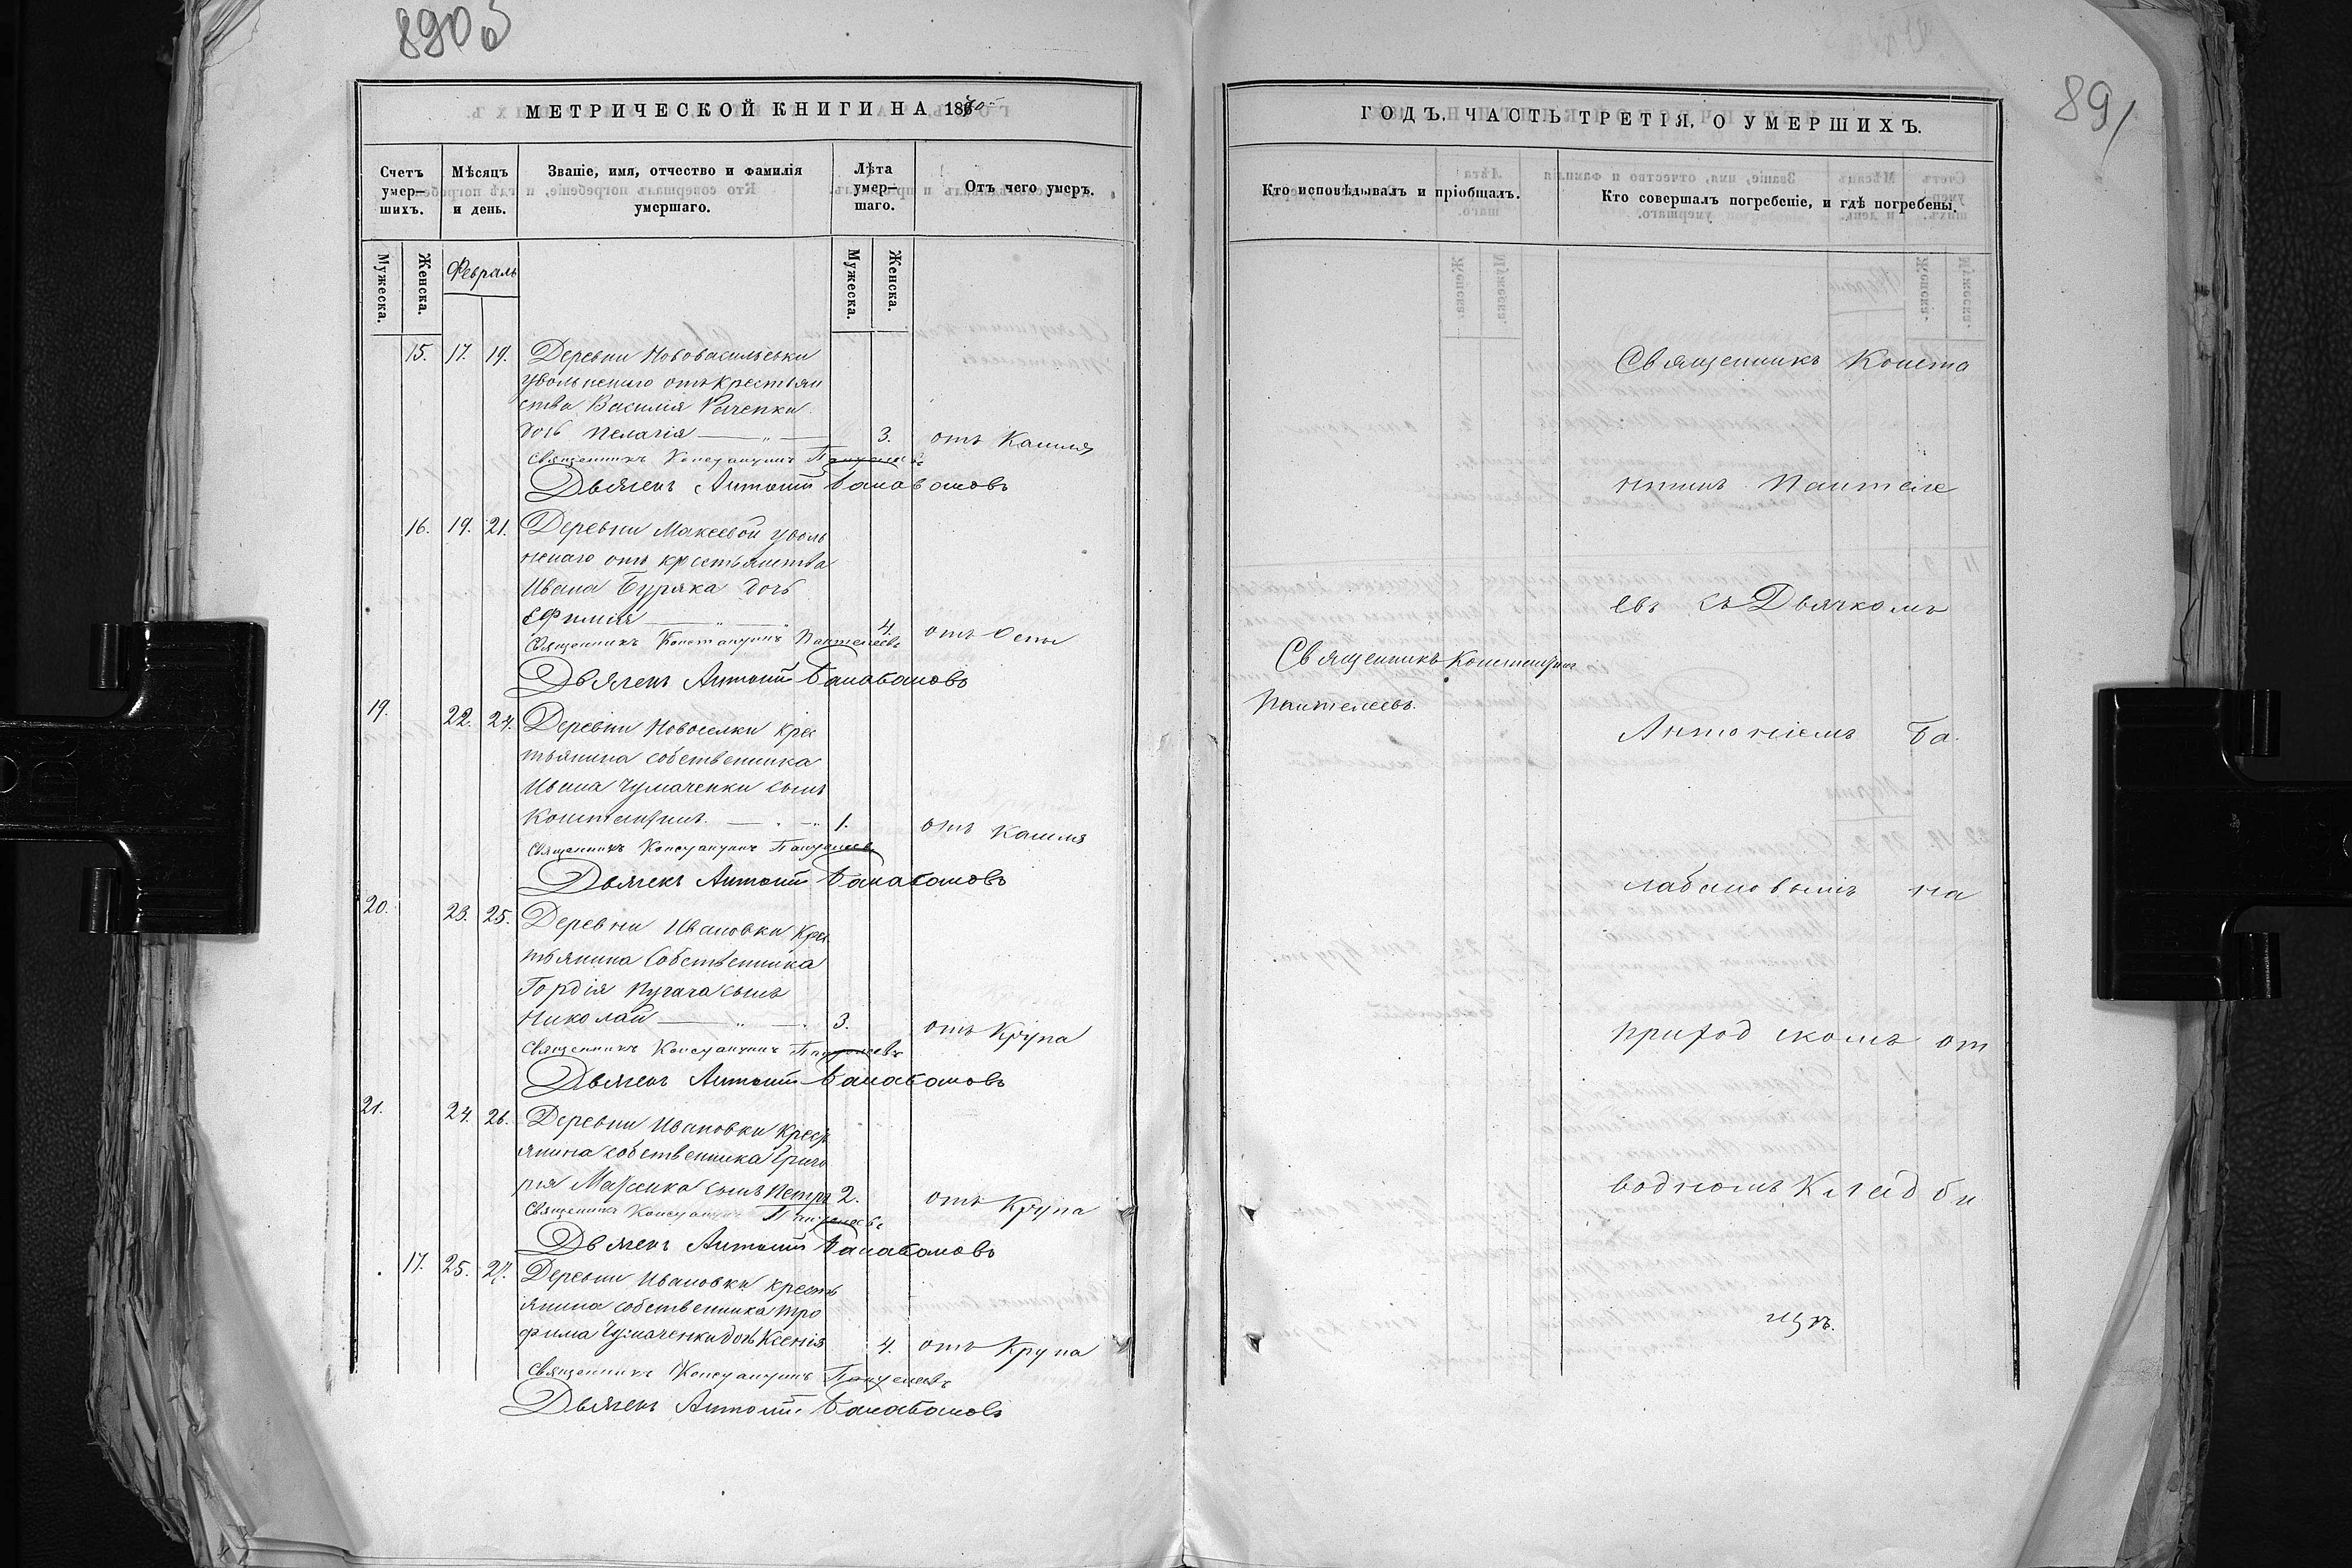 890б
МЕТРИЧЕСКОЙ КНИГИ НА 1870
Счетъ умер-шихъ.
Мѣсяцъ и день.
Званіе, имя, отчество и фамилія умершаго.
Лѣта умер-шаго.
Отъ чего умеръ.
Мужеска.
Женска.
Февраль
Мужеска.
Женска.
15. 17. 19. Деревни Нововасильевки
уволненнаго отъ крестьян
ства Василія Раченки
дочь Пелагія 3. отъ Кашля
Священникъ Константинъ Пантелеевъ
Дьячекъ Антоній Балабановъ
16. 19. 21. Деревни Макеевой уволь
неннаго отъ крестьянства
Ивана Буряка дочь
Ефимія 4. отъ Оспы
Священникъ Константинъ Пантелеевъ
Дьячекъ Антоній Балабановъ
19. 22. 24. Деревни Новоселки крес
тьянина собственника
Ивана Чумаченки сынъ
Константинъ 1. отъ Кашля
Священникъ Константинъ Пантелеевъ
Дьячекъ Антоній Балабановъ
20. 23. 25. Деревни Ивановки Крес
тьянина Собственника
Гордія Пугача сынъ
Николай 3. отъ Крупа
Священникъ Константинъ Пантелеевъ
Дьячекъ Антоній Балабановъ
21. 24. 26. Деревни Ивановки Крест
янина собственника Григо
рія сынъ Петръ 2. отъ Крупа
Священникъ Константинъ Пантелеевъ
Дьячекъ Антоній Балабановъ
17. 25. 27. Деревни Ивановки кресть
янина собственника Тро
фима Чумаченки дочь Ксенія 4. отъ Крупа
Священникъ Константинъ Пантелеевъ
Дьячекъ Антоній Балабановъ
89
ГОДЪ. ЧАСТЬ ТРЕТІЯ, О УМЕРШИХЪ.
Кто исповѣдывалъ и пріобщалъ.
Кто совершалъ погребеніе, и гдѣ погребены.
Священникъ Константинъ
Пантелеевъ.
Священникъ Конста
нтинъ Пантеле
евъ съ Дьячкомъ
Антоніемъ Ба
лабановымъ на
приходскомъ от
водномъ Кладби
щѣ.